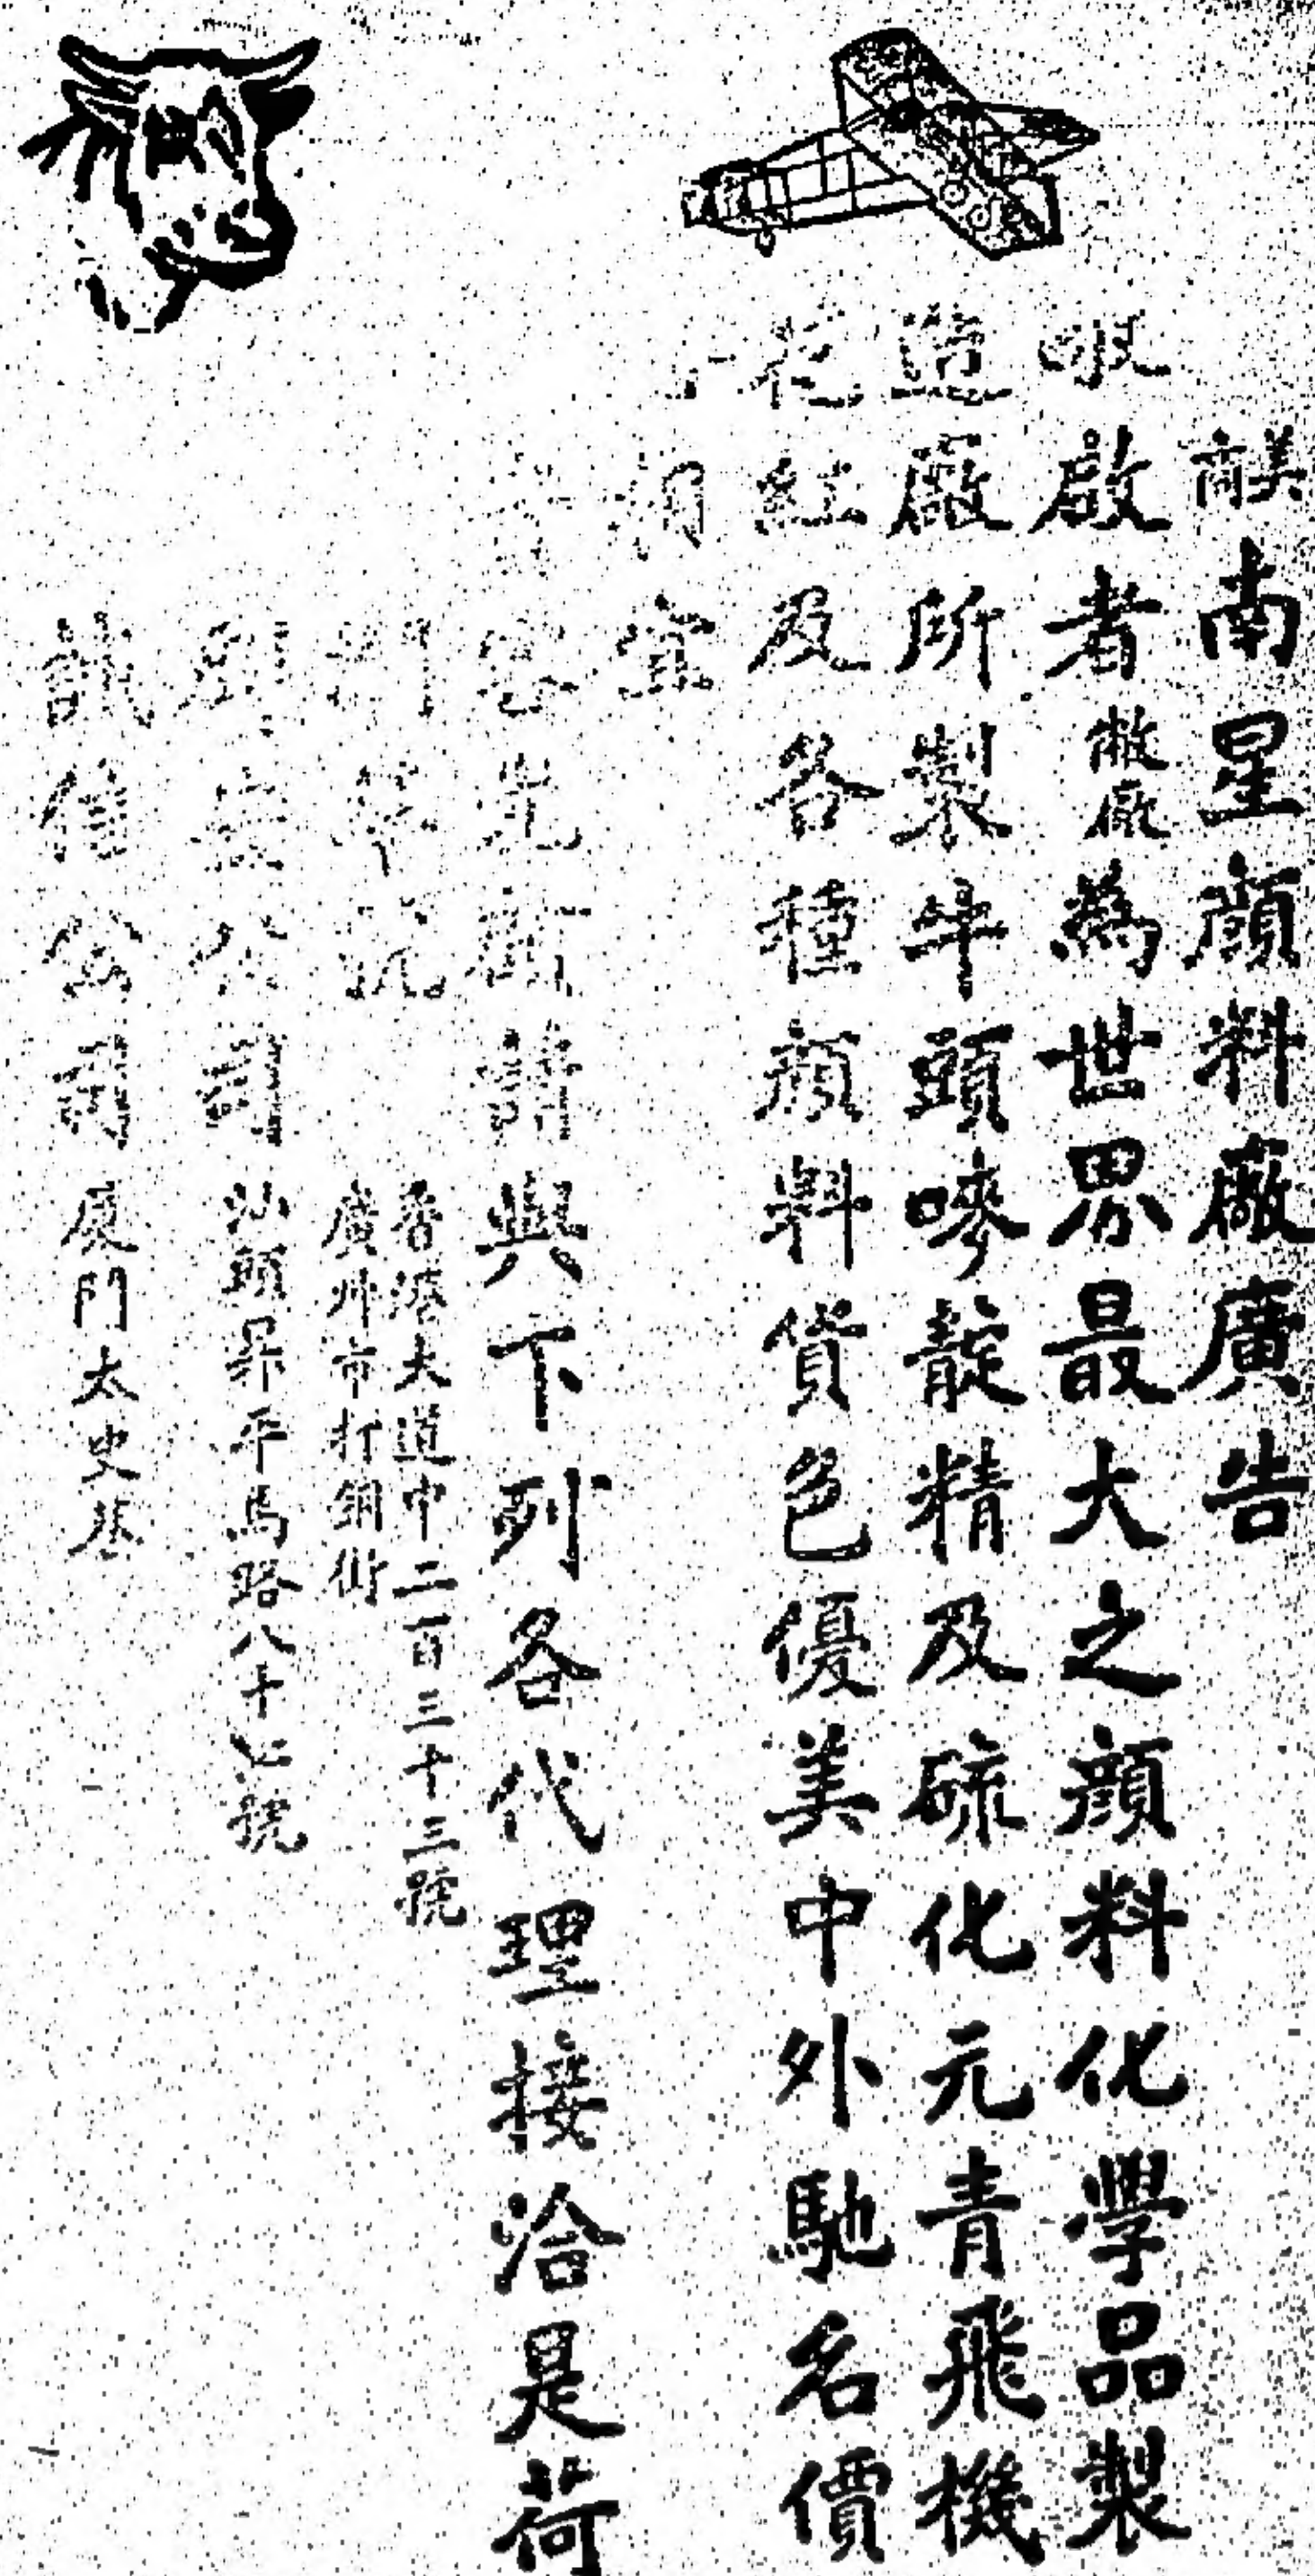 美商南星顔料廠廣告
敬啟者敝廠為世界最大之顔料化學品製
造廠所製牛頭嘜靛精及硫化元青飛機
花紅及各種顔料貨色優美中外馳名價
宜
惠光顧請與下列各代理接洽是荷
香港大道中二百三十三號
廣州市打銅街
公司 汕頭昇平馬路八十七號
誠信公司 廈門太史巷